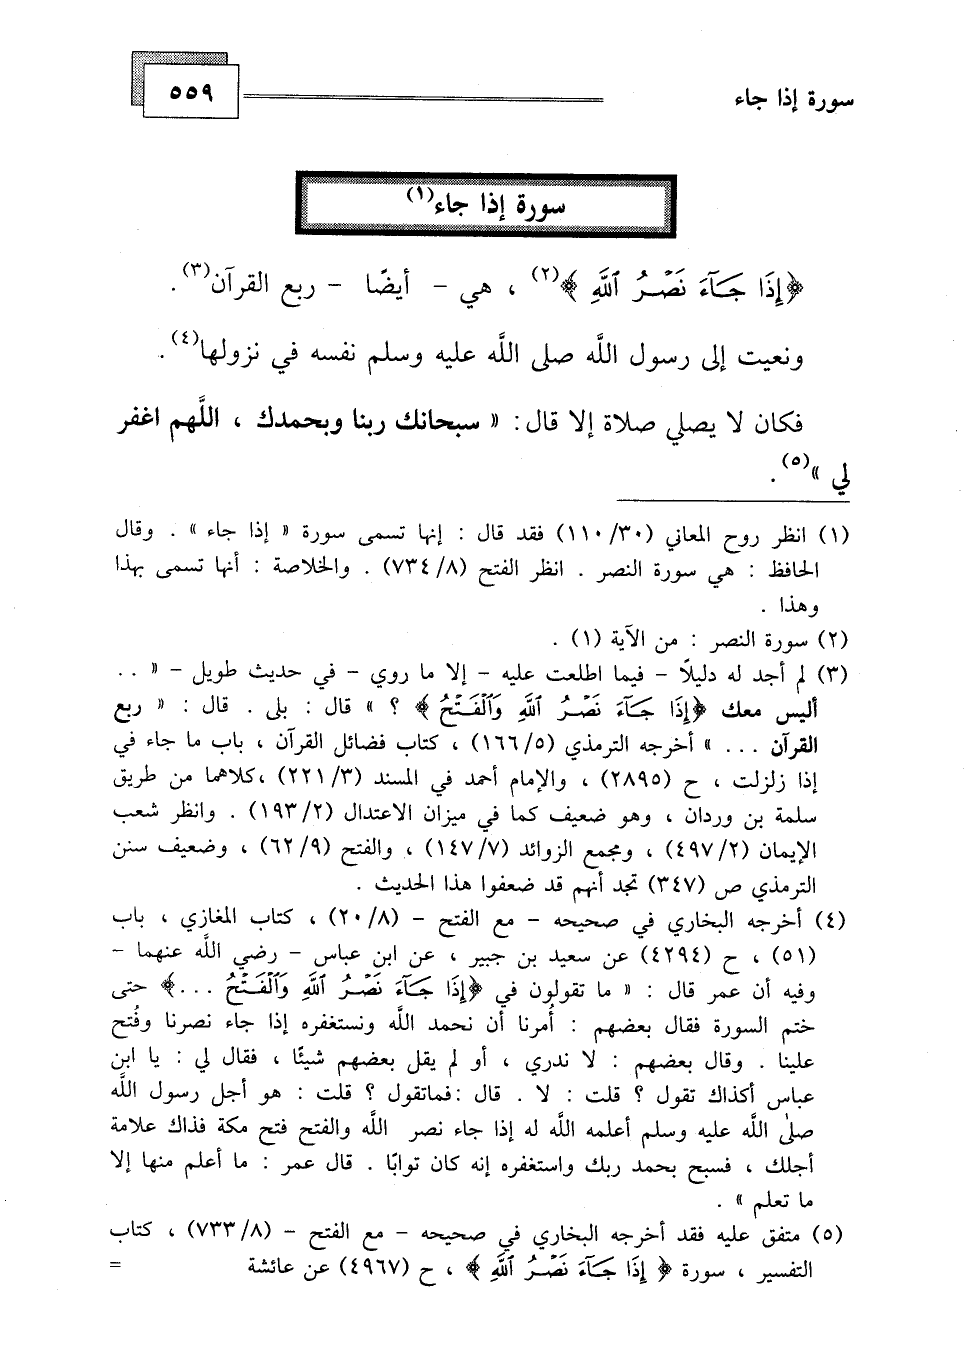 سورة إذا جاء
٥٥٩
سورة إذا جاء(١)
﴿إِذَا جَآءَ نَصْرُ ٱللَّهِ ﴾(٢) ، هي - أيضًا - ربع القرآن(٣).
ونعيت إلى رسول اللَّه صلى اللَّه عليه وسلم نفسه في نزولها(٤).
فكان لا يصلي صلاة إلا قال: « سبحانك ربنا وبحمدك ، اللَّهم اغفر
لي »(٥).
(١) انظر روح المعاني (١١٠/٣٠) فقد قال : إنها تسمى سورة « إذا جاء » . وقال
الحافظ : هي سورة النصر . انظر الفتح (٧٣٤/٨) . والخلاصة : أنها تسمى بهذا
وهذا .
(٢) سورة النصر : من الآية (١) .
(٣) لم أجد له دليلاً - فيما اطلعت عليه - إلا ما روي - في حديث طويل - « ..
أليس معك ﴿إِذَا جَآءَ نَصْرُ ٱللَّهِ وَٱلْفَتْحُ﴾ ؟ » قال : بلى . قال : « ربع
القرآن ... » أخرجه الترمذي (١٦٦/٥) ، كتاب فضائل القرآن ، باب ما جاء في
إذا زلزلت ، ح (٢٨٩٥) ، والإمام أحمد في المسند (٢٢١/٣) ،كلاهما من طريق
سلمة بن وردان ، وهو ضعيف كما في ميزان الاعتدال (١٩٣/٢) . وانظر شعب
الإيمان (٤٩٧/٢) ، ومجمع الزوائد (١٤٧/٧) ، والفتح (٦٢/٩) ، وضعيف سنن
الترمذي ص (٣٤٧) تجد أنهم قد ضعفوا هذا الحديث .
(٤) أخرجه البخاري في صحيحه - مع الفتح - (٢٠/٨) ، كتاب المغازي ، باب
(٥١) ، ح (٤٢٩٤) عن سعيد بن جبير ، عن ابن عباس - رضي اللَّه عنهما -
وفيه أن عمر قال : « ما تقولون في ﴿إِذَا جَآءَ نَصْرُ ٱللَّهِ وَٱلْفَتْحُ ...﴾ حتى
ختم السورة فقال بعضهم : أُمرنا أن نحمد اللَّه ونستغفره إذا جاء نصرنا وفُتح
علينا . وقال بعضهم : لا ندري ، أو لم يقل بعضهم شيئًا ، فقال لي : يا ابن
عباس أكذاك تقول ؟ قلت : لا . قال :فماتقول ؟ قلت : هو أجل رسول اللَّه
صلى اللَّه عليه وسلم أعلمه اللَّه له إذا جاء نصر اللَّه والفتح فتح مكة فذاك علامة
أجلك ، فسبح بحمد ربك واستغفره إنه كان توابًا . قال عمر : ما أعلم منها إلا
ما تعلم » .
(٥) متفق عليه فقد أخرجه البخاري في صحيحه - مع الفتح - (٧٣٣/٨) ، كتاب
التفسير ، سورة ﴿ إِذَا جَآءَ نَصْرُ ٱللَّهِ ﴾ ، ح (٤٩٦٧) عن عائشة =